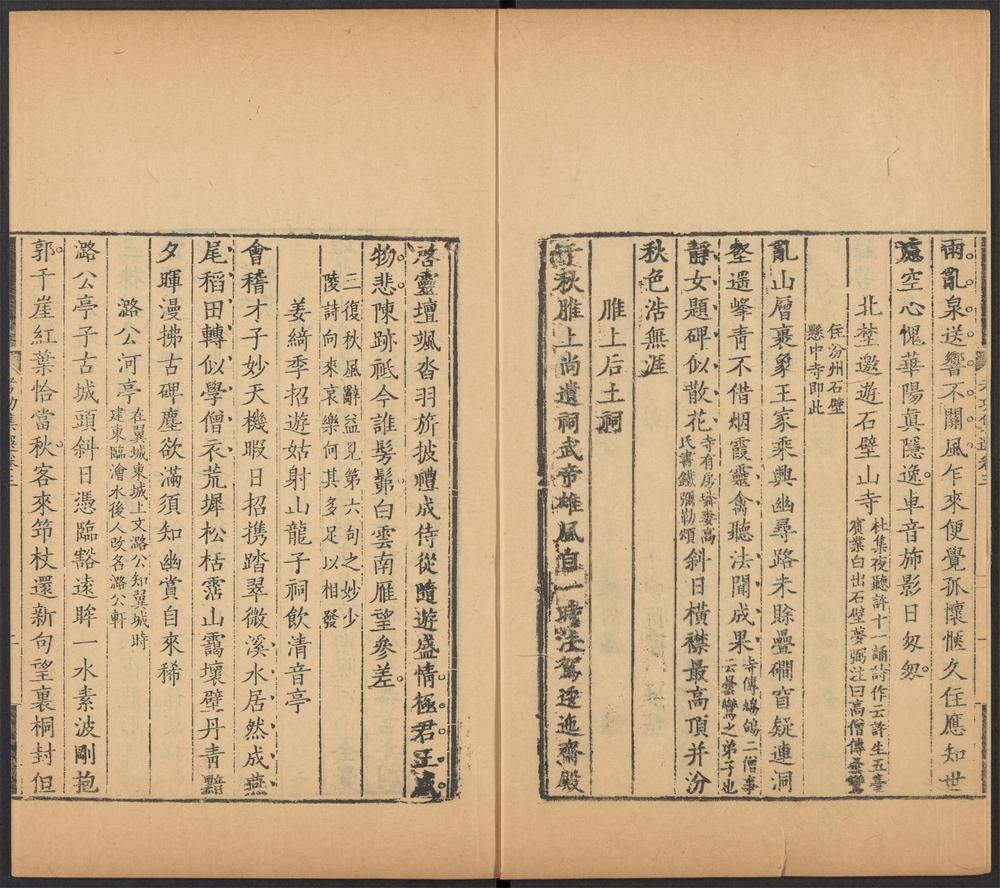 雨亂泉送響不關風乍來便覺孤懷愜久住應知世
慮空心愧華陽真隱逸車音斾影日匆匆
北埜邀遊石壁山寺
杜集夜聽許十一誦詩作云許生五臺
賓業白出石壁夢弼注曰高僧傳曇鸞
住汾州石壁
懸中寺即此
亂山層裹象王家乘興幽尋路未賒疊磵窅疑連洞
壑遥峯青不借烟霞靈禽聽法聞成果
寺傳鴿二僧事
云曇鸞之弟子也
靜女題碑似散花
寺有房嶙妻高
氏書鐵彌勒頌
斜日橫襟最高頂并汾
秋色浩無涯
脽上后土祠
秋脽上尚遺祠武帝雄風自一時法駕逶迤齋殿
啓靈壇颯沓羽旂披禮成侍從隨遊盛情極君王
物悲陳跡祗今誰髣髴白雲南雁望參差
三復秋風辭益見第六句之妙少
陵詩向來哀樂何其多足以相發
姜綺季招遊姑射山龍子祠飲清音亭
會稽才子妙天機暇日招攜踏翠微溪水居然成燕
尾稻田轉似學僧衣荒墀松栝霑山靄壞壁丹青黯
夕暉漫拂古碑塵欲滿須知幽賞自來稀
潞公河亭
在翼城東城上文潞公知翼城時
建東臨澮水後人改名潞公軒
潞公亭子古城頭斜日憑臨豁遠眸一水素波剛抱
郭千崖紅葉恰當秋客來笻杖還新句望裏桐封但